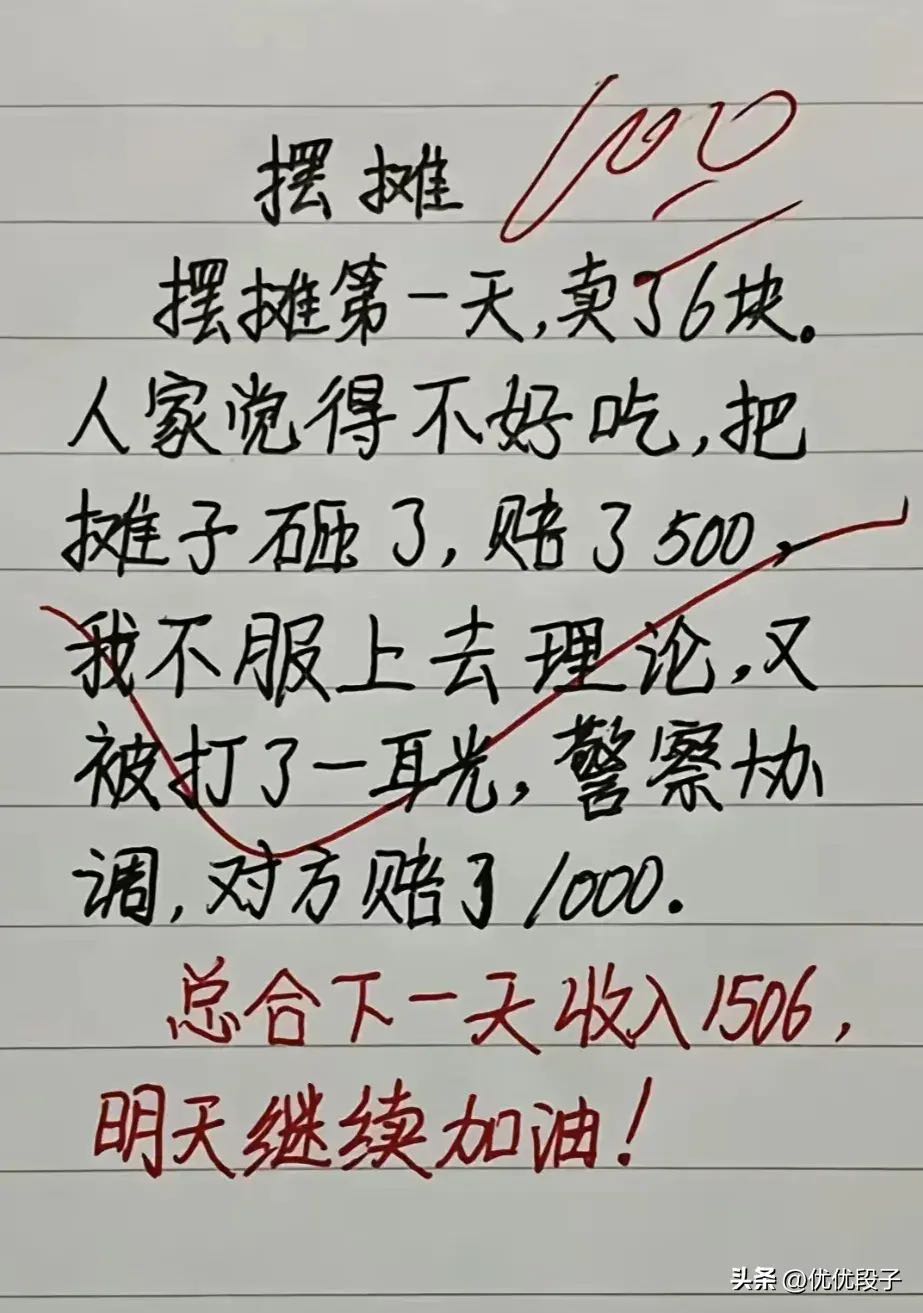 摆摊
100
摆摊第一天,卖了6块。
人家觉得不好吃,把
摊子砸了,赔了500,
我不服上去理论,又
被打了一耳光,警察协
调,对方赔了1000.
总合下一天收入1506,
明天继续加油!
头条 @优优段子